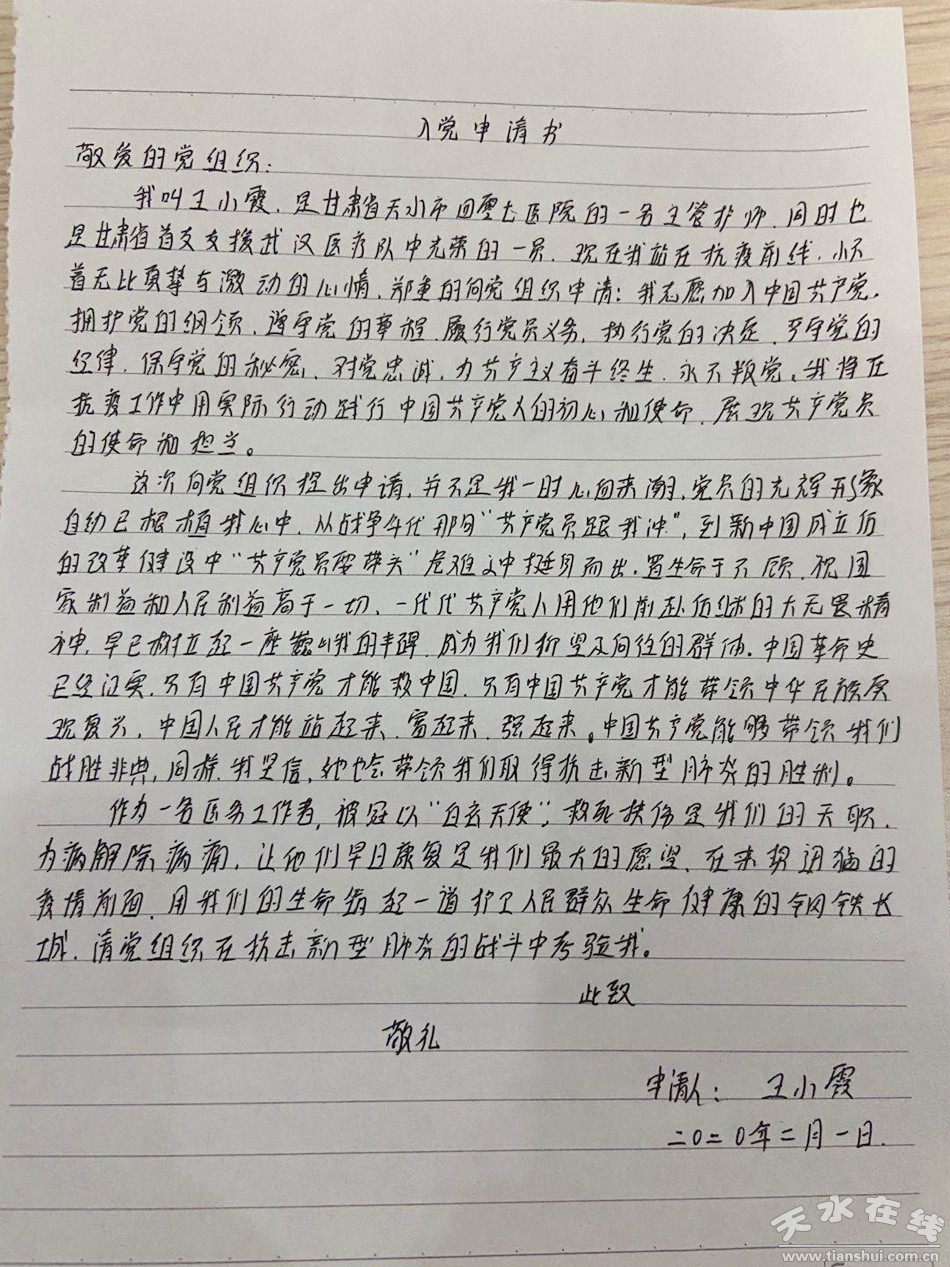 入党申请书
敬爱的党组织:
我叫王小霞,是甘肃省天水市四零七医院的一名主管护师,同时也
是甘肃省首支支援武汉医疗队中光荣的一员.现在我站在抗疫前线,怀
着无比真挚与激动的心情,郑重的向党组织申请:我志愿加入中国共产党.
拥护党的纲领,遵守党的章程,履行党员义务,执行党的决定,严守党的
纪律,保守党的秘密,对党忠诚,为共产主义奋斗终生,永不叛党。我将在
抗疫工作中用实际行动践行中国共产党人的初心和使命,展现共产党员
的使命和担当。
这次向党组织提出申请,并不是我一时心血来潮,党员的光辉形象
自幼已根植我心中,从战争年代那句“共产党员跟我冲”,到新中国成立后
的改革建设中“共产党员要带头”危难之中挺身而出,置生命于不顾,视国
家利益和人民利益高于一切、一代代共产党人用他们前赴后继的大无畏精
神,早已树立起一座巍峨的丰碑,成为我们仰望及向往的群体.中国革命史
已经证实,只有中国共产党才能救中国,只有中国共产党才能带领中华民族实
现复兴,中国人民才能站起来、富起来、强起来。中国共产党能够带领我们
战胜非典,同样,我坚信,她也会带领我们取得抗击新型肺炎的胜利。
作为一名医务工作者,被冠以“白衣天使”,救死扶伤是我们的天职,
为病解除病痛,让他们早日康复是我们最大的愿望,在来势迅猛的
疫情前面,用我们的生命铸起一道护卫人民群众生命健康的钢铁长
城,请党组织在抗击新型肺炎的战斗中考验我。
此致
敬礼
申请人:王小霞
二〇二〇年二月一日.
天水在线
www.tianshui.com.cn